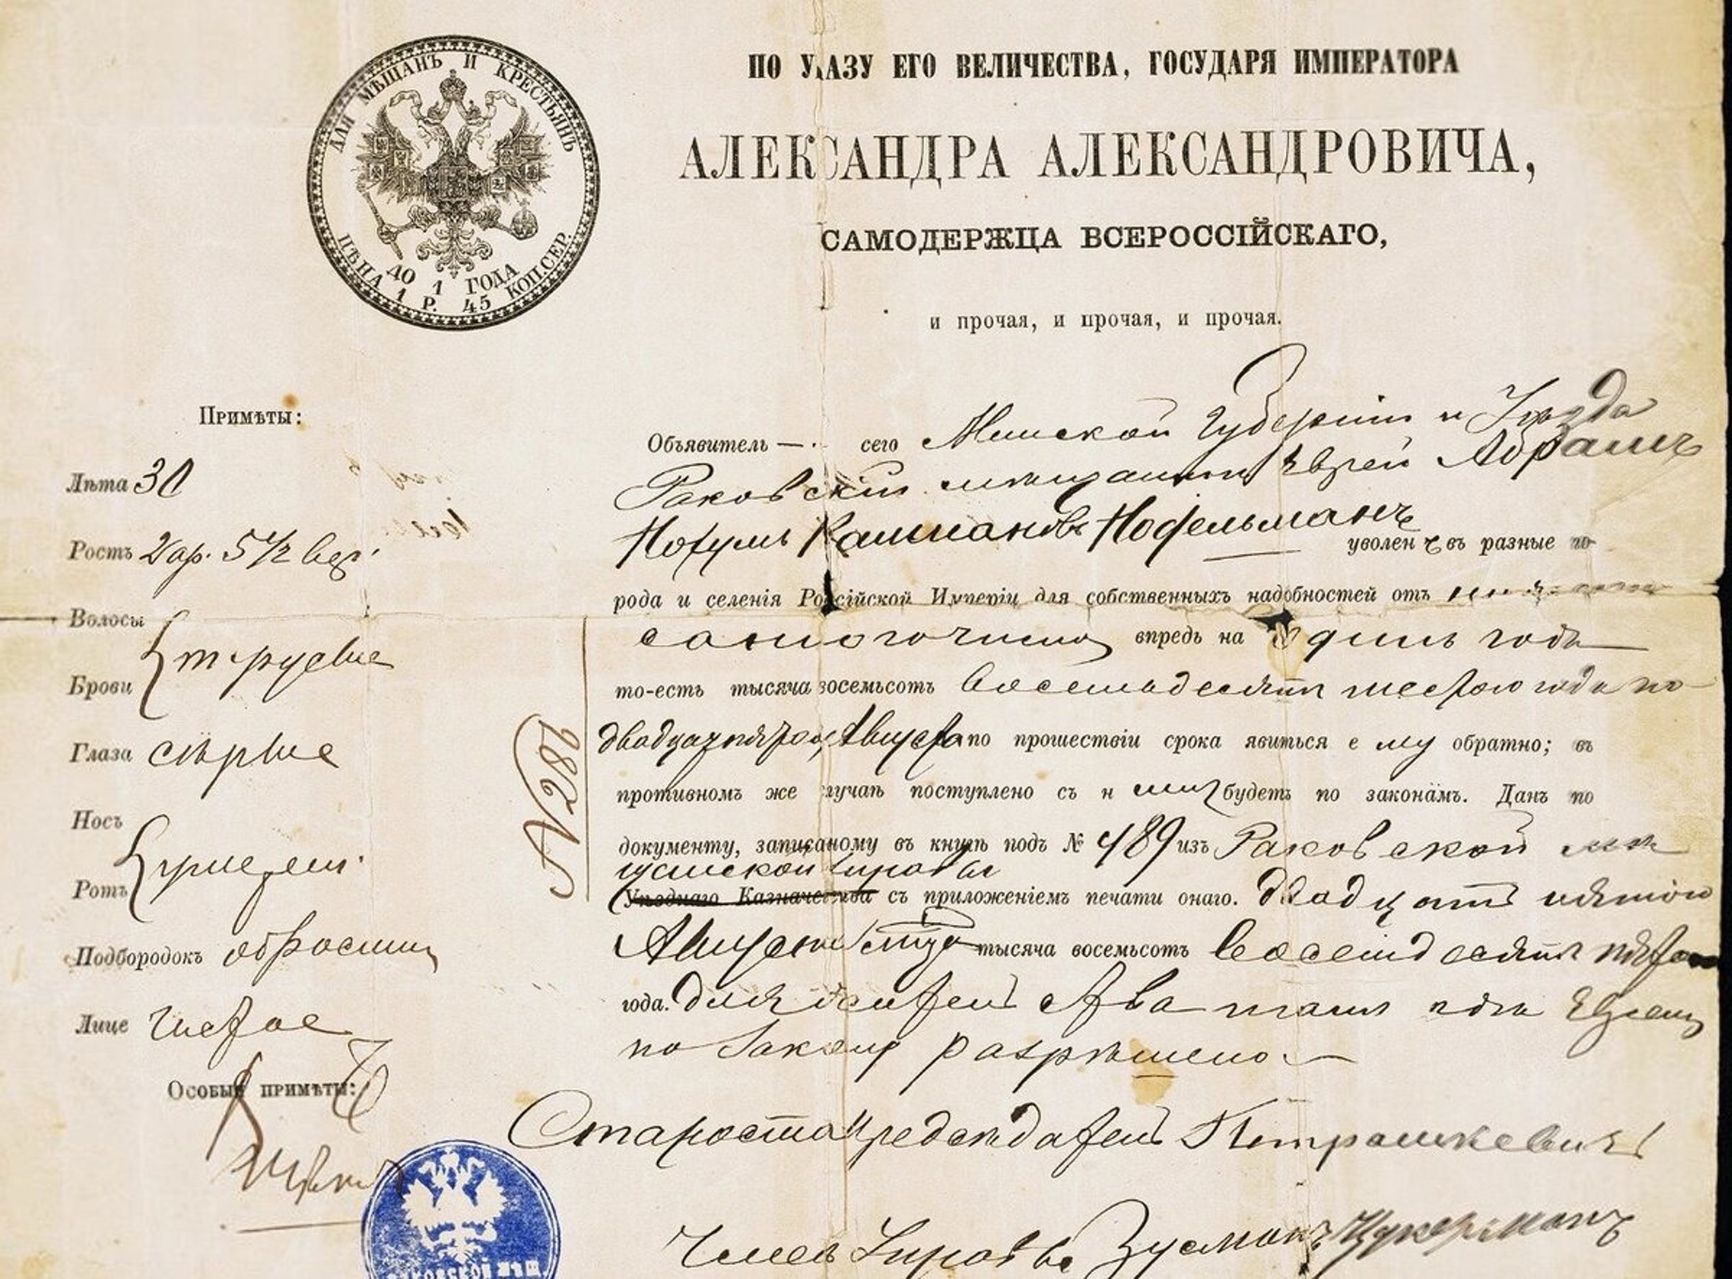 ДЛЯ МѢЩАНЪ И КРЕСТЬЯНЪ
ДО 1 ГОДА
ЦѢНА 1 Р. 45 КОП. СЕР.
ПО УКАЗУ ЕГО ВЕЛИЧЕСТВА, ГОСУДАРЯ ИМПЕРАТОРА
АЛЕКСАНДРА АЛЕКСАНДРОВИЧА,
САМОДЕРЖЦА ВСЕРОССІЙСКАГО,
и прочая, и прочая, и прочая.
Примѣты:
Лѣта 30
Ростъ 2 ар. 5 1/2 вер.
Волосы
Брови
Глаза сѣрые
Носъ
Ротъ
Подбородокъ обросший
Лице чистое
Особыя примѣты:
N 286
Объявитель сего Минской Губерніи и Уѣзда
Раковскій мѣщанинъ Еврей Абрамъ
Нохумъ Нофельманъ уволенъ въ разные го-
рода и селенія Россійской Имперіи для собственныхъ надобностей отъ
впредь на одинъ годъ
то-есть тысяча восемьсотъ восемьдесятъ шестого года по
двадцать Августа по прошествіи срока явиться ему обратно; въ
противномъ же случаѣ поступлено съ нимъ будетъ по законамъ. Данъ по
документу, записаному въ книгѣ подъ № 489 изъ Раковской мѣ
щанской управы
Уѣзднаго Казначейства съ приложеніемъ печати онаго. Двадцать пятого
Августа тысяча восемьсотъ восемьдесятъ пятого
года. гдѣ Евреямъ
по закону разрѣшено
Староста Предсѣдатель Петрашкевичъ
Членъ Управы Зусманъ Цукерманъ